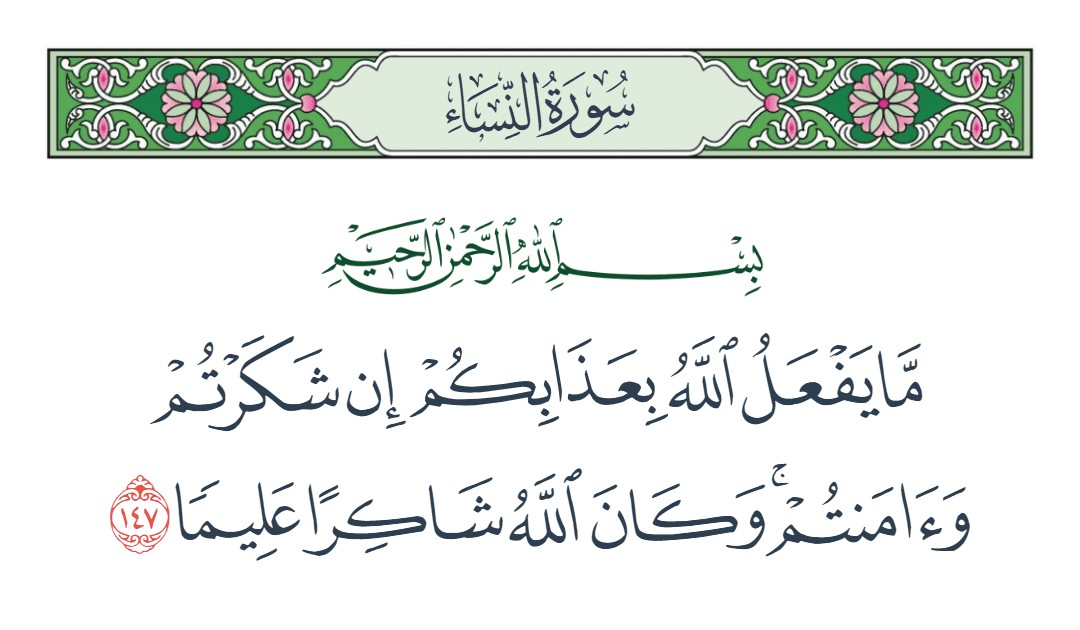 سُورَةُ النِّسَاءِ
بِسْمِ ٱللَّهِ ٱلرَّحْمَٰنِ ٱلرَّحِيمِ
مَّا يَفْعَلُ ٱللَّهُ بِعَذَابِكُمْ إِن شَكَرْتُمْ
وَءَامَنتُمْ ۚ وَكَانَ ٱللَّهُ شَاكِرًا عَلِيمًا ١٤٧